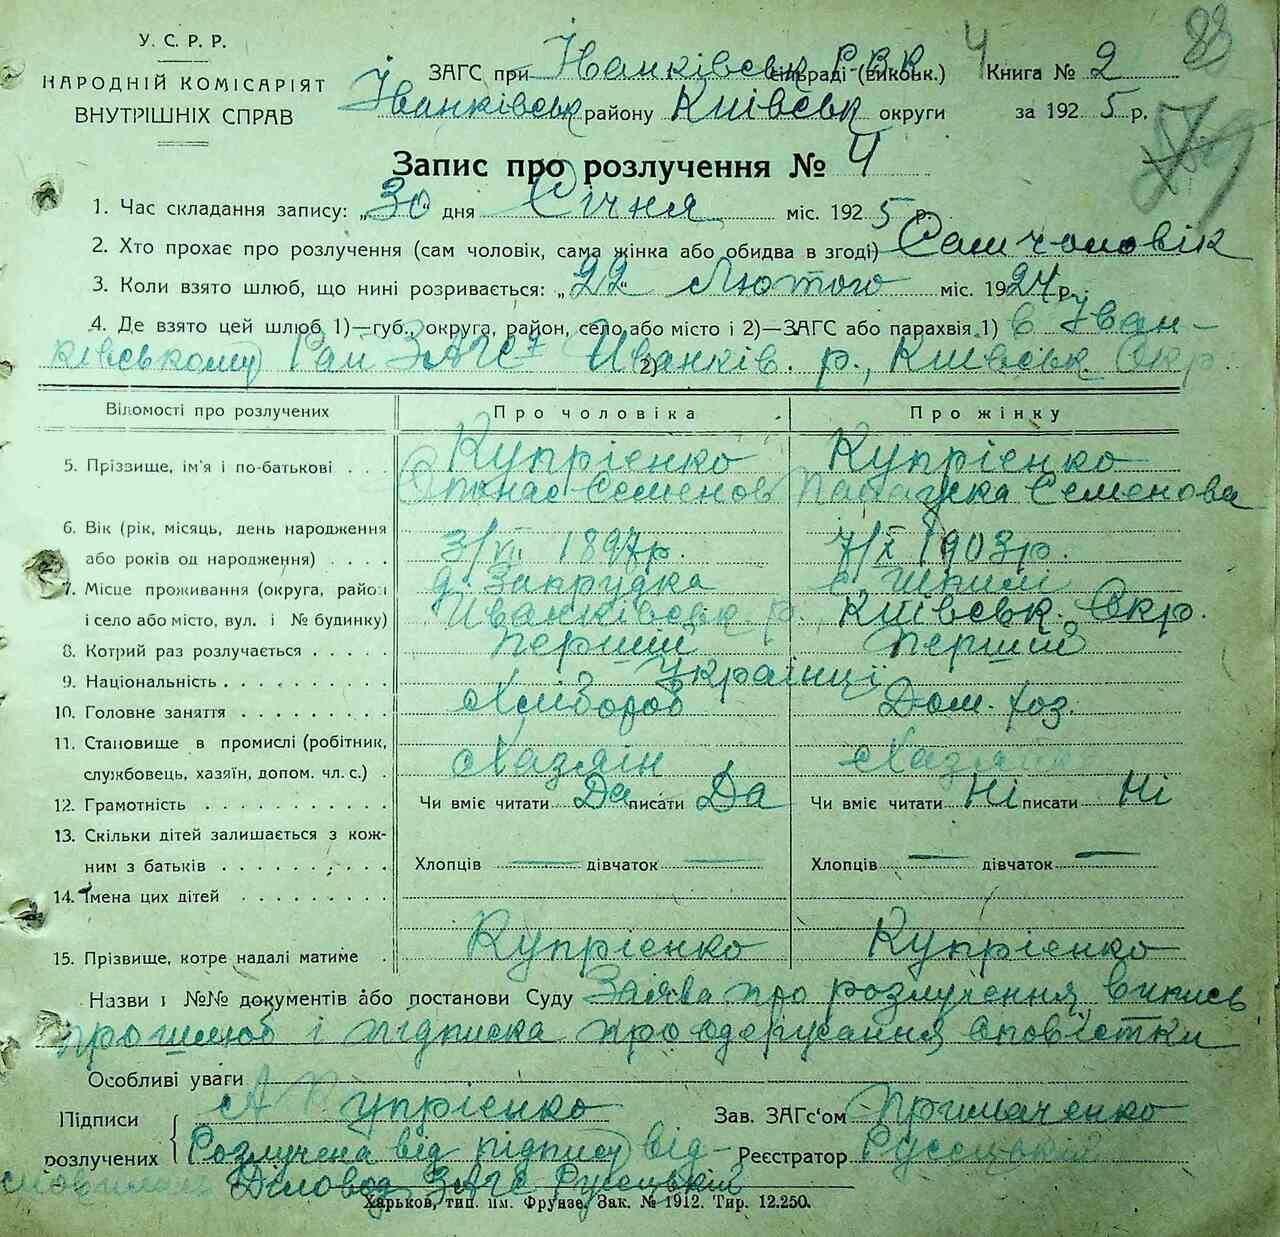 У. С. Р. Р.
НАРОДНІЙ КОМІСАРІЯТ
ВНУТРІШНІХ СПРАВ
88
4
ЗАГС при Іванківськ РВК сільраді (виконк.) Книга № 2
Іванківськ району Київськ округи за 1925 р.
Запис про розлучення № 4
1. Час складання запису: „30" дня Січня міс. 1925 р.
2. Хто прохає про розлучення (сам чоловік, сама жінка або обидва в згоді) Сам чоловік
3. Коли взято шлюб, що нині розривається: „22" Лютого міс. 1924 р.
4. Де взято цей шлюб 1)—губ., округа, район, село або місто і 2)—ЗАГС або парахвія 1) в Іван-
ківському Рай ЗАГС'і 2) Иванків. р., Київськ Окр
Відомості про розлучених Про чоловіка Про жінку
5. Прізвище, ім'я і по-батькові . . . Купрієнко Купрієнко
Опанас Семенов Параска Семенова
6. Вік (рік, місяць, день народження
або років од народження) . . . . 3/VII 1897р. 7/X 1903р.
7. Місце проживання (округа, район д. Запрудка с. Шпилі
і село або місто, вул. і № будинку) Иванківськ р., Київськ. Окр.
8. Котрий раз розлучається . . . . . Перший Перший
9. Національність . . . . . . . . . Українці
10. Головне заняття . . . . . . . . . Хлібороб Дом. хоз.
11. Становище в промислі (робітник,
службовець, хазяїн, допом. чл. с.) . Хазяїн
12. Грамотність . . . . . . . . . . . Чи вміє читати Да писати Да Чи вміє читати Ні писати Ні
13. Скільки дітей залишається з кож-
ним з батьків . . . . . . . . . . Хлопців — дівчаток — Хлопців — дівчаток —
14. Імена цих дітей . . . . . . . . .
15. Прізвище, котре надалі матиме . Купрієнко Купрієнко
Назви і №№ документів або постанови Суду Заява про розлучення, випись
про шлюб і підписка про одержання оповістки
Особливі уваги
Підписи А Купрієнко Зав. ЗАГС'ом Примаченко
розлучених Розлучена від підпису від- Реєстратор Русецький
мовилась Діловод ЗАГС Русецький
Харьков, тип. им. Фрунзе. Зак. № 1912. Тир. 12.250.